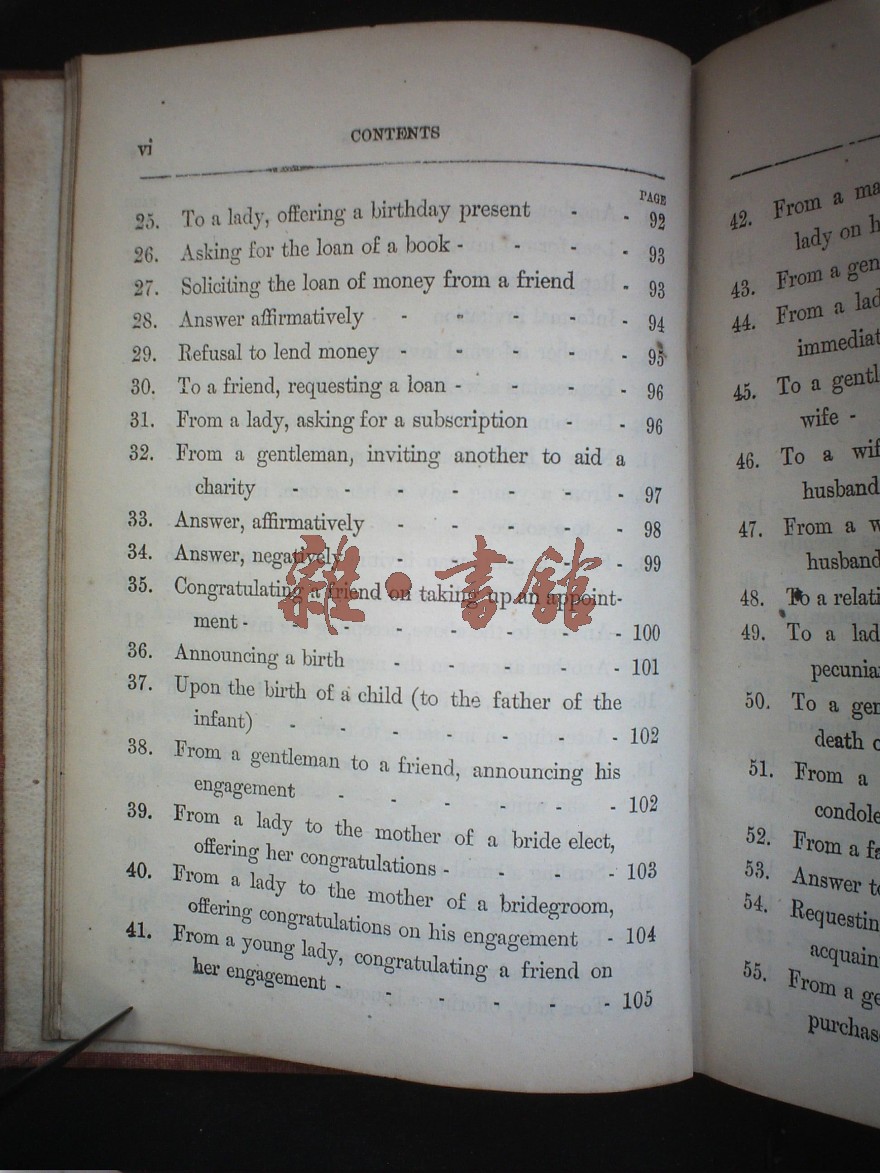 vi
CONTENTS
PAGE
25. To a lady, offering a birthday present - - 92
26. Asking for the loan of a book - - - - 93
27. Soliciting the loan of money from a friend - 93
28. Answer affirmatively - - - - - 94
29. Refusal to lend money - - - - - 95
30. To a friend, requesting a loan - - - - 96
31. From a lady, asking for a subscription - - 96
32. From a gentleman, inviting another to aid a
charity - - - - - - - 97
33. Answer, affirmatively - - - - - 98
34. Answer, negatively - - - - - 99
35. Congratulating a friend on taking up an appoint-
ment - - - - - - - - 100
36. Announcing a birth - - - - - 101
37. Upon the birth of a child (to the father of the
infant) - - - - - - - 102
38. From a gentleman to a friend, announcing his
engagement - - - - - - 102
39. From a lady to the mother of a bride elect,
offering her congratulations - - - - 103
40. From a lady to the mother of a bridegroom,
offering congratulations on his engagement - 104
41. From a young lady, congratulating a friend on
her engagement - - - - - - 105
雜·書館
42. From a
lady on
43. From a
44. From a
45. To a
wife -
46. To a
husband
47. From a
husband
48. To a
49. To a
50. To a
death
51. From a
52. From a
53. Answer
54.
55. From a